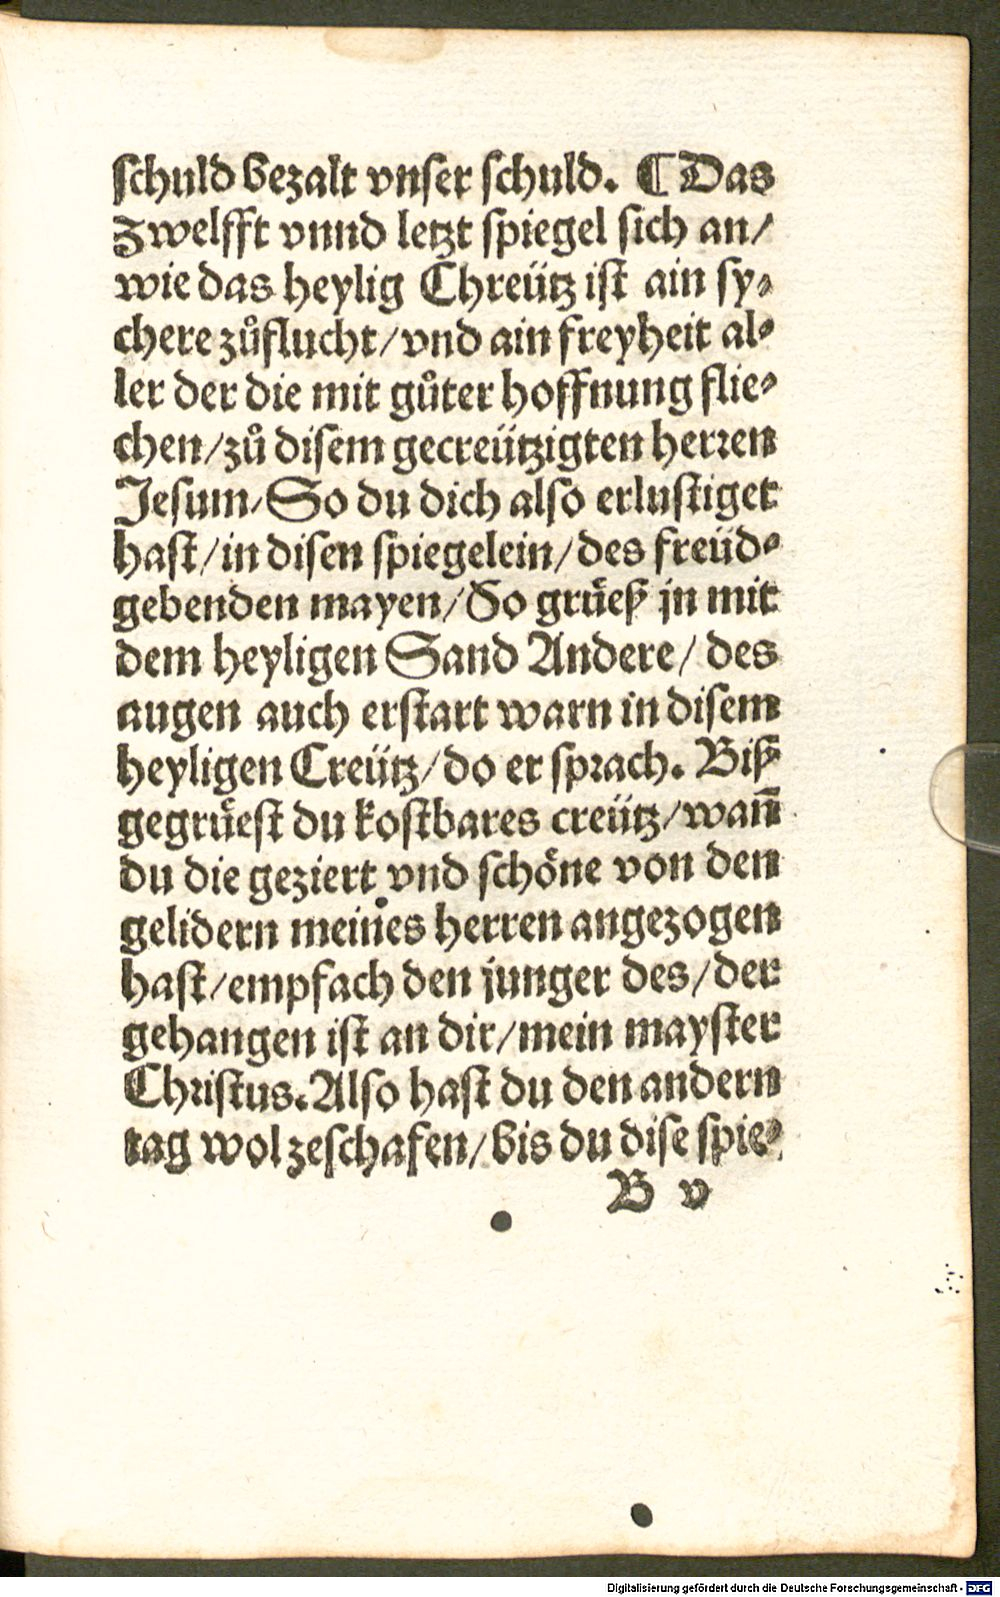 ſchuld bezalt vnſer ſchuld. ¶ Das
zwelfft vnnd letzt ſpiegel ſich an/
wie das heylig Chreütz iſt ain ſy⸗
chere zůflucht/vnd ain freyheit al⸗
ler der die mit gůter hoffnung flie⸗
chen/zů diſem gecreützigten herꝛen
Jeſum/So du dich alſo erluſtiget
haſt/in diſen ſpiegelein/des freüd⸗
gebenden mayen/So grüeß jn mit
dem heyligen Sand Andere/ des
augen auch erſtart warn in diſem
heyligen Creütz/do er ſpꝛach. Biß
gegrüeſt du koſtbares creütz/wañ
du die geziert vnd ſchöne von den
gelidern meines herren angezogen
haſt/empfach den junger des/der
gehangen iſt an dir/mein mayſter
Chꝛiſtus.Alſo haſt du den andern
tag wol zeſchafen/bis du diſe ſpie⸗
B v
Digitalisierung gefördert durch die Deutsche Forschungsgemeinschaft - DFG